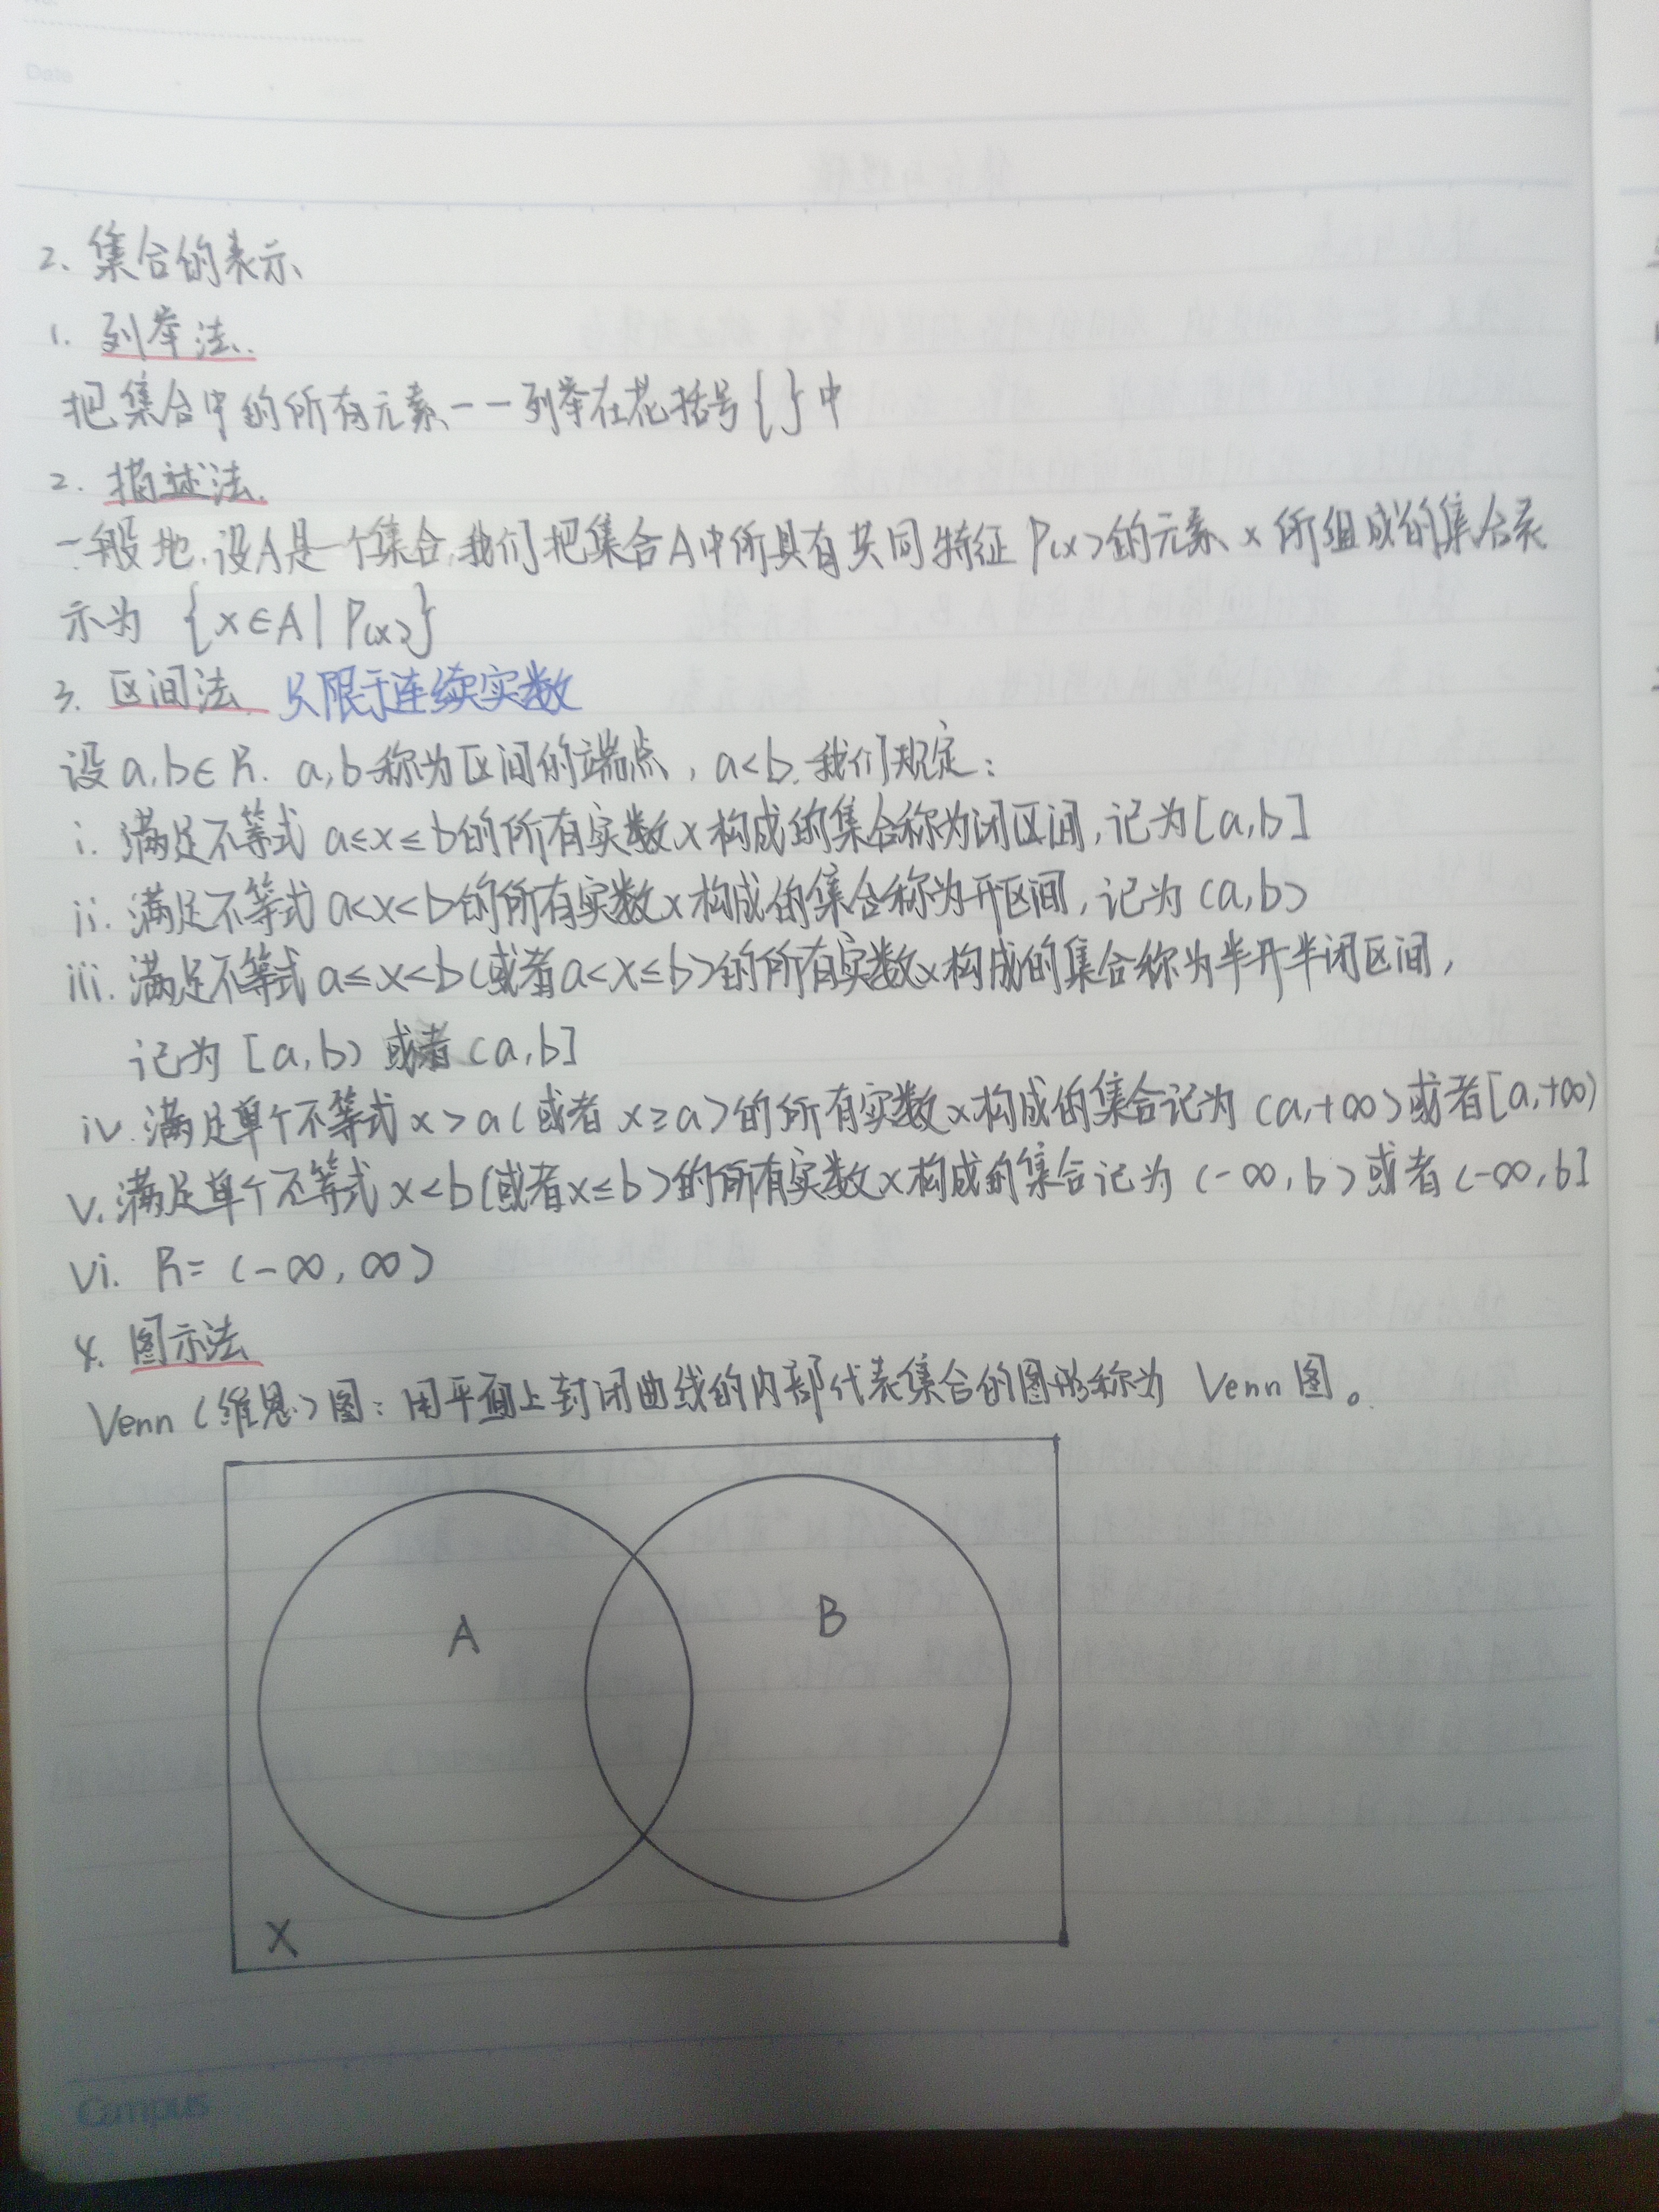 Date
2、集合的表示
1. 列举法.
把集合中的所有元素一一列举在花括号{}中
2. 描述法.
一般地,设A是一个集合,我们把集合A中所具有共同特征P(x)的元素x所组成的集合表
示为 {x∈A|P(x)}
3. 区间法. 只限于连续实数
设a,b∈R. a,b称为区间的端点,a<b.我们规定:
i. 满足不等式a≤x≤b的所有实数x构成的集合称为闭区间,记为[a,b]
ii. 满足不等式a<x<b的所有实数x构成的集合称为开区间,记为(a,b)
iii. 满足不等式a≤x<b(或者a<x≤b)的所有实数x构成的集合称为半开半闭区间,
记为[a,b)或者(a,b]
iv. 满足单个不等式x>a(或者x≥a)的所有实数x构成的集合记为(a,+∞)或者[a,+∞)
v. 满足单个不等式x<b(或者x≤b)的所有实数x构成的集合记为(-∞,b)或者(-∞,b]
vi. R=(-∞,∞)
4. 图示法
Venn(维恩)图:用平面上封闭曲线的内部代表集合的图形称为 Venn图。
A
B
X
Campus